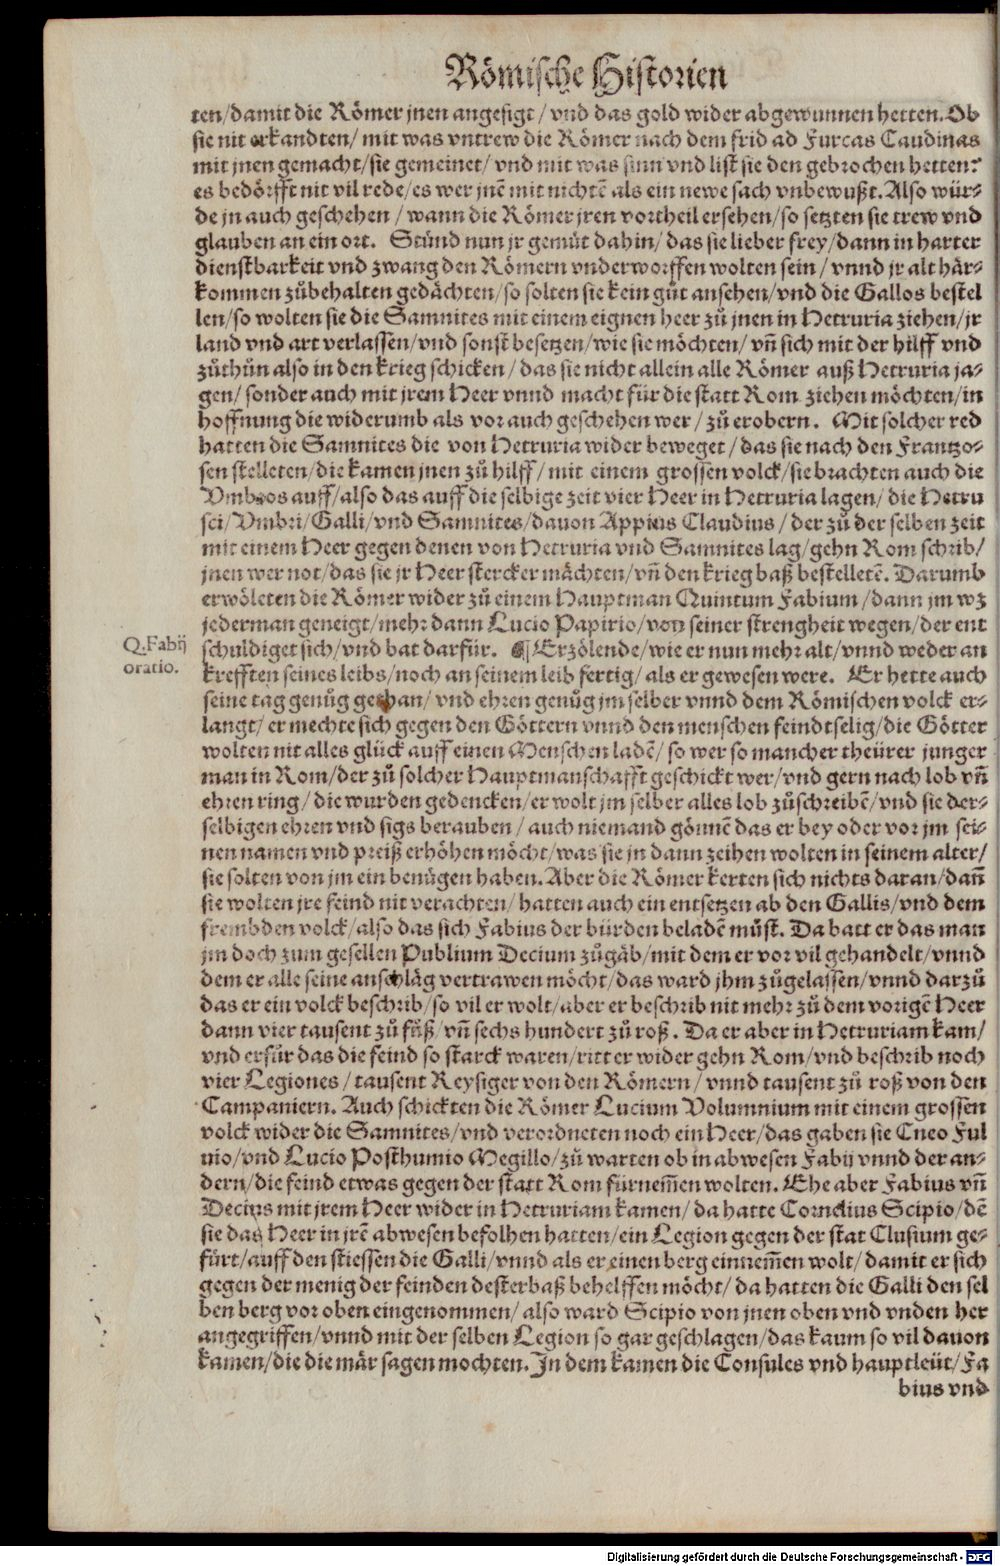 Römische Historien
ten/damit die Römer jnen angesigt/ vnd das gold wider abgewunnen hetten. Ob
sie nit erkandten/ mit was vntrew die Römer nach dem frid ad Furcas Caudinas
mit jnen gemacht/sie gemeinet/ vnd mit was sinn vnd list sie den gebrochen hetten?
es bedörfft nit vil rede/es wer jnē mit nichtē als ein newe sach vnbewußt. Also wür⸗
de jn auch geschehen/ wann die Römer jren vortheil ersehen/so setzten sie trew vnd
glauben an ein ort. Stünd nun jr gemüt dahin/ das sie lieber frey/dann in harter
dienstbarkeit vnd zwang den Römern vnderworffen wolten sein/ vnnd jr alt här⸗
kommen zůbehalten gedächten/so solten sie kein gůt ansehen/vnd die Gallos bestel
len/so wolten sie die Samnites mit einem eignen heer zů jnen in Hetruria ziehen/jr
land vnd art verlassen/vnd sonst besetzen/wie sie möchten/ vñ sich mit der hilff vnd
zůthůn also in den krieg schicken/ das sie nicht allein alle Römer auß Hetruria ja⸗
gen/ sonder auch mit jrem Heer vnnd macht für die statt Rom ziehen möchten/in
hoffnung die widerumb als vor auch geschehen wer/ zů erobern. Mit solcher red
hatten die Samnites die von Hetruria wider beweget/ das sie nach den Frantzo⸗
sen stelleten/die kamen jnen zů hilff/ mit einem grossen volck/sie brachten auch die
Vmbros auff/also das auff die selbige zeit vier Heer in Hetruria lagen/ die Hetru
sci/Vmbri/Galli/vnd Samnites/dauon Appius Claudius/ der zů der selben zeit
mit einem Heer gegen denen von Hetruria vnd Samnites lag/gehn Rom schrib/
jnen wer not/das sie jr Heer stercker mächten/vñ den krieg baß bestelletē. Darumb
erwöleten die Römer wider zů einem Hauptman Quintum Fabium/dann jm wz
jederman geneigt/mehr dann Lucio Papirio/von seiner strengheit wegen/der ent
Q. Fabij
oratio.
schuldiget sich/vnd bat darfür. ¶ Erzölende/wie er nun mehr alt/vnnd weder an
krefften seines leibs/noch an seinem leib fertig/ als er gewesen were. Er hette auch
seine tag genůg gethan/ vnd ehren genůg jm selber vnnd dem Römischen volck er⸗
langt/ er mechte sich gegen den Göttern vnnd den menschen feindtselig/die Götter
wolten nit alles glück auff einen Menschen ladē/ so wer so mancher theürer junger
man in Rom/der zů solcher Hauptmanschafft geschickt wer/vnd gern nach lob vñ
ehren ring/ die wurden gedencken/er wolt jm selber alles lob zůschreibē/vnd sie der⸗
selbigen ehren vnd sigs berauben/ auch niemand gönnē das er bey oder vor jm sei⸗
nen namen vnd preiß erhöhen möcht/was sie jn dann zeihen wolten in seinem alter/
sie solten von jm ein benügen haben. Aber die Römer kerten sich nichts daran/dañ
sie wolten jre feind nit verachten/ hatten auch ein entsetzen ab den Gallis/vnd dem
frembden volck/also das sich Fabius der bürden beladē můst. Da batt er das man
jm doch zum gesellen Publium Decium zůgäb/mit dem er vor vil gehandelt/vnnd
dem er alle seine anschläg vertrawen möcht/das ward jhm zůgelassen/vnnd darzů
das er ein volck beschrib/so vil er wolt/aber er beschrib nit mehr zů dem vorigē Heer
dann vier tausent zů fůß/vñ sechs hundert zů roß. Da er aber in Hetruriam kam/
vnd erfůr das die feind so starck waren/ritt er wider gehn Rom/vnd beschrib noch
vier Legiones/ tausent Reysiger von den Römern/ vnnd tausent zů roß von den
Campaniern. Auch schickten die Römer Lucium Volumnium mit einem grossen
volck wider die Samnites/vnd verordneten noch ein Heer/das gaben sie Cneo Ful
uio/vnd Lucio Posthumio Megillo/zů warten ob in abwesen Fabij vnnd der an⸗
dern/die feind etwas gegen der statt Rom fürnem̄en wolten. Ehe aber Fabius vñ
Decius mit jrem Heer wider in Hetruriam kamen/ da hatte Cornelius Scipio/dē
sie das Heer in jrē abwesen befolhen hatten/ein Legion gegen der stat Clusium ge⸗
fürt/auff den stiessen die Galli/vnnd als er einen berg einnem̄en wolt/ damit er sich
gegen der menig der feinden desterbaß behelffen möcht/ da hatten die Galli den sel
ben berg vor oben eingenommen/ also ward Scipio von jnen oben vnd vnden her
angegriffen/vnnd mit der selben Legion so gar geschlagen/das kaum so vil dauon
kamen/die die mär sagen mochten. In dem kamen die Consules vnd hauptleüt/Fa
bius vnd
Digitalisierung gefördert durch die Deutsche Forschungsgemeinschaft - DFG